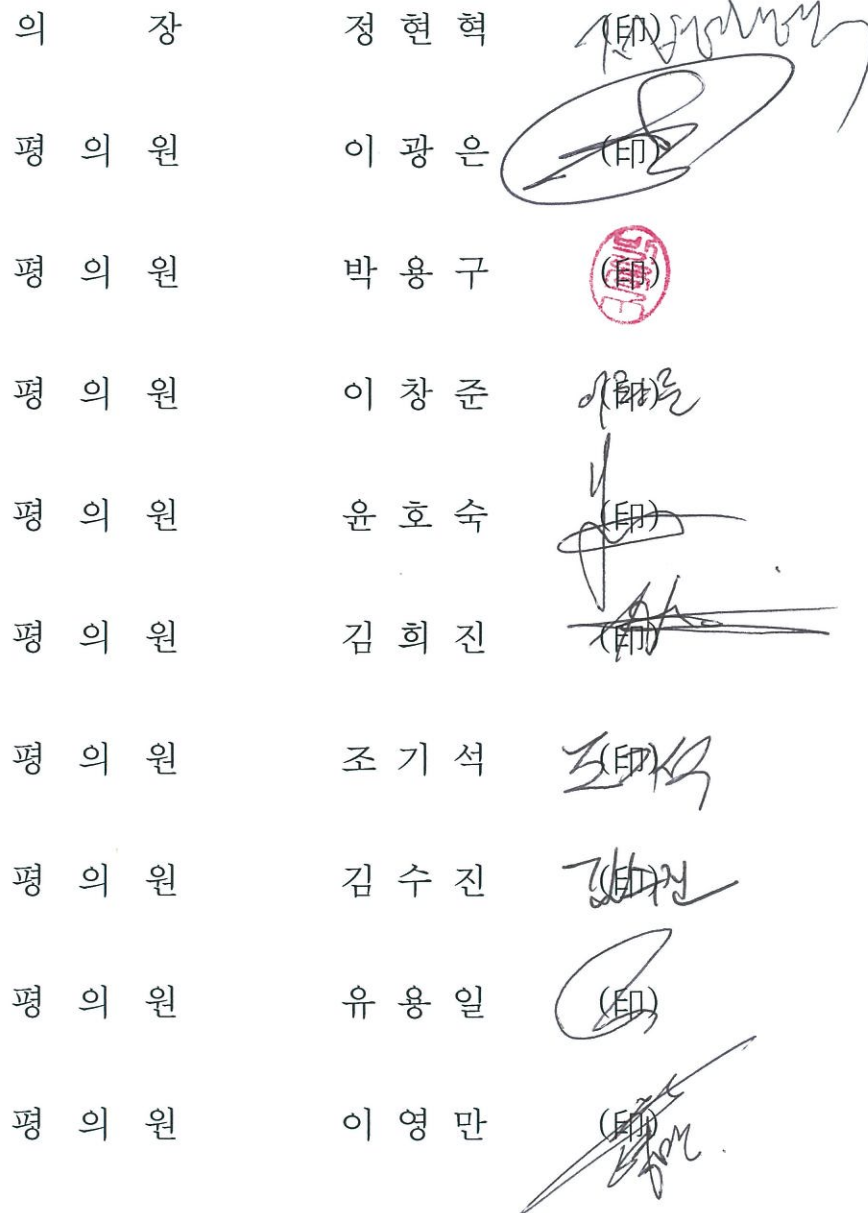 의 장 정 현 혁 (印)
평 의 원 이 광 은 (印)
평 의 원 박 용 구 (印)
평 의 원 이 창 준 (印)
평 의 원 윤 호 숙 (印)
평 의 원 김 희 진 (印)
평 의 원 조 기 석 (印)
평 의 원 김 수 진 (印)
평 의 원 유 용 일 (印)
평 의 원 이 영 만 (印)